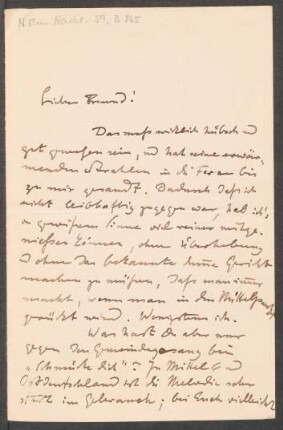 N. Mus. Nachl. 59, B 865
Lieber Freund!
Das muß wirklich hübsch und
gut gewesen sein, und hat seine erwär-
menden Strahlen in die Ferne bis
zu mir gesandt. Dadurch daß ich
nicht leibhaftig zugegen war, hab ich's
in gewissem Sinne viel reiner mitge-
nießen können, ohne Überhebung
u ohne das bekannte Gesicht
machen zu müssen, daß man immer
macht, wenn man in den Mittelpunkt
gerückt wird. Wenigstens ich.
Was hast Du aber nur
gegen den Gemeindegesang bei
"Schmücke dich"? In Mittel- und
Ostdeutschland ist die Melodie sehr
stark im Gebrauch; bei Euch vielleicht